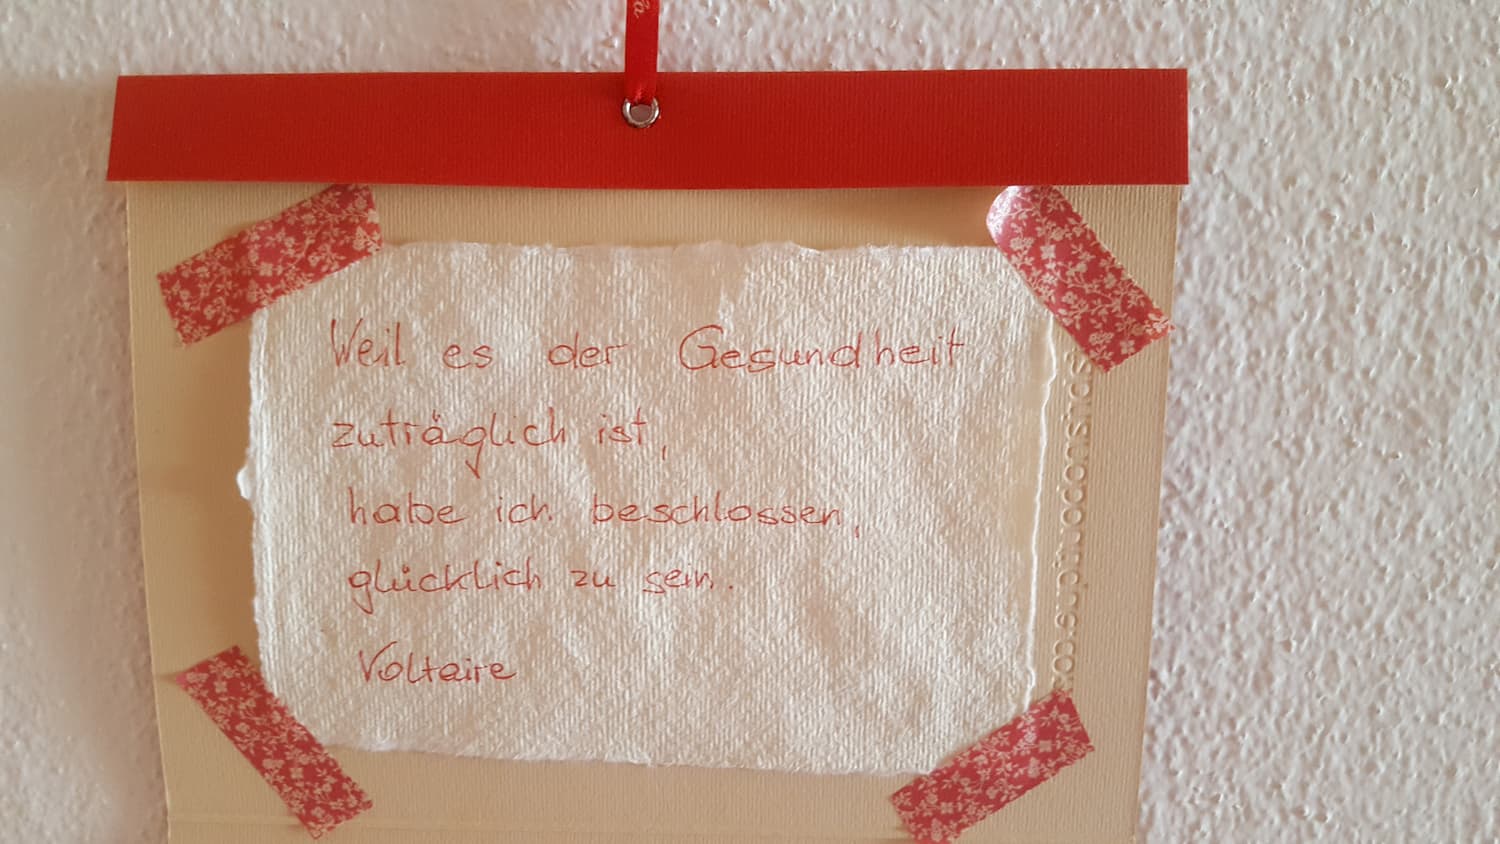 Weil es der Gesundheit
zuträglich ist,
habe ich beschlossen,
glücklich zu sein.
Voltaire